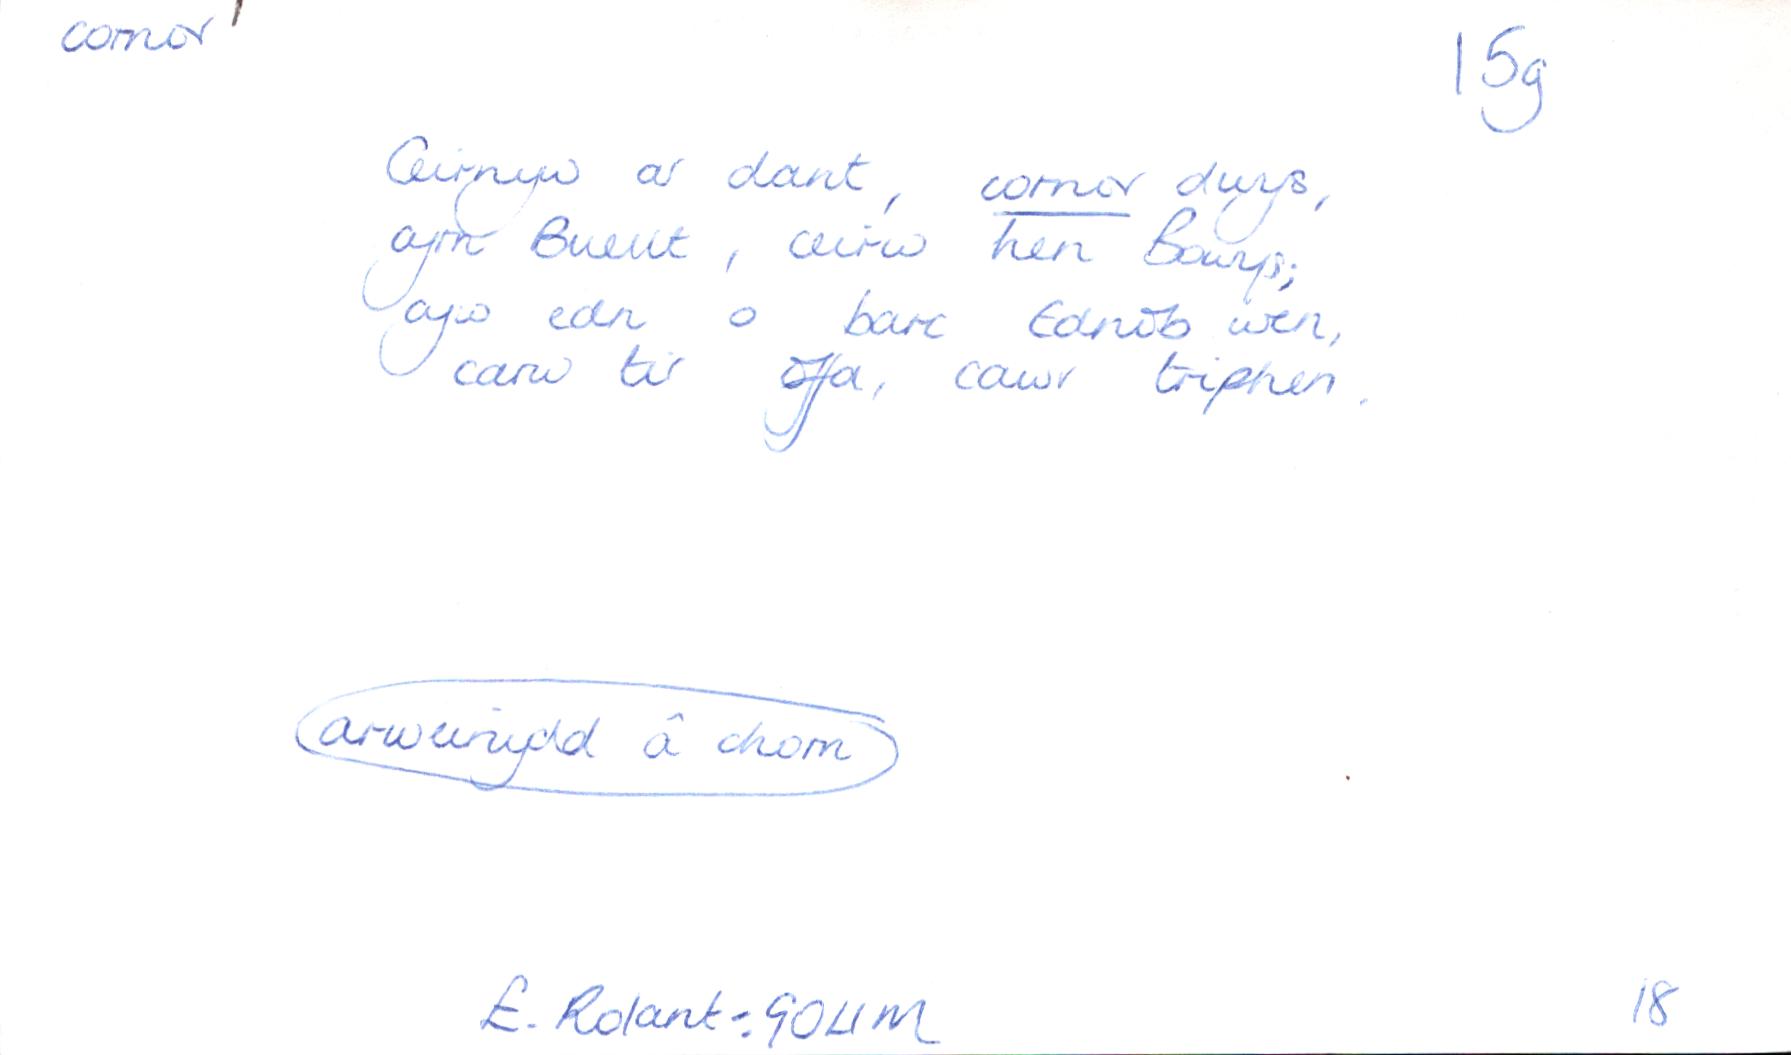 cornor¹
15g
Ceirnyw ar dant, cornor dwys,
ayrn Buellt, ceirw hen Bowys;
ayw edn o barc Ednob wen,
carw tir Offa, cawr triphen.
arweinydd â chorn
E. Rolant: GOLlM
18